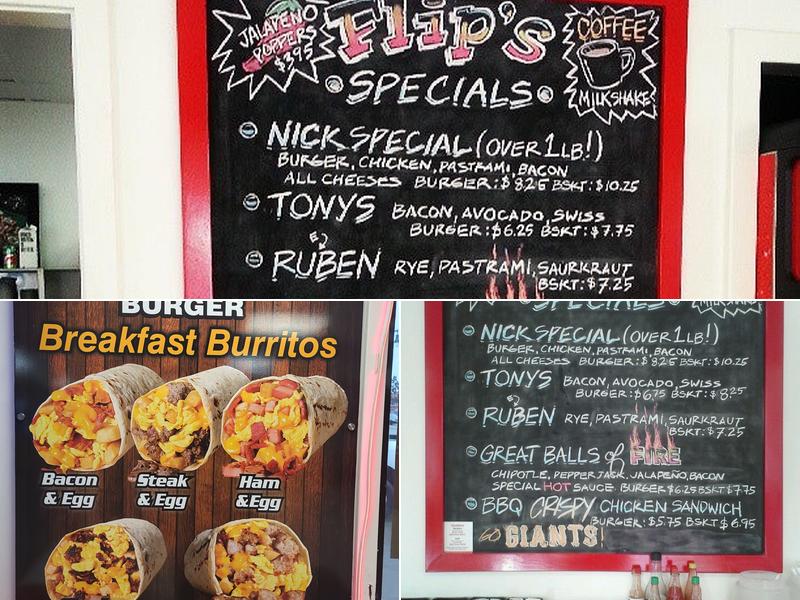 JALAPEÑO
POPPERS
$3.95
Flip's
COFFEE
MILKSHAKE
SPECIALS
NICK SPECIAL (OVER 1 LB!)
BURGER, CHICKEN, PASTRAMI, BACON
ALL CHEESES BURGER: $8.25 BSKT: $10.25
TONYS BACON, AVOCADO, SWISS
BURGER: $6.25 BSKT: $7.75
RUBEN RYE, PASTRAMI, SAURKRAUT
BSKT: $7.25
BURGER
Breakfast Burritos
Bacon
& Egg
Steak
& Egg
Ham
& Egg
SPECIALS
MILKSHAKE
NICK SPECIAL (OVER 1 LB!)
BURGER, CHICKEN, PASTRAMI, BACON
ALL CHEESES BURGER: $8.25 BSKT: $10.25
TONYS BACON, AVOCADO, SWISS
BURGER: $6.75 BSKT: $8.25
RUBEN RYE, PASTRAMI, SAURKRAUT
BSKT: $7.25
GREAT BALLS of FIRE
CHIPOTLE, PEPPER JACK, JALAPEÑO, BACON
SPECIAL HOT SAUCE BURGER $6.25 BSKT $7.75
BBQ CRISPY CHICKEN SANDWICH
BURGER: $5.75 BSKT $6.95
GO GIANTS!